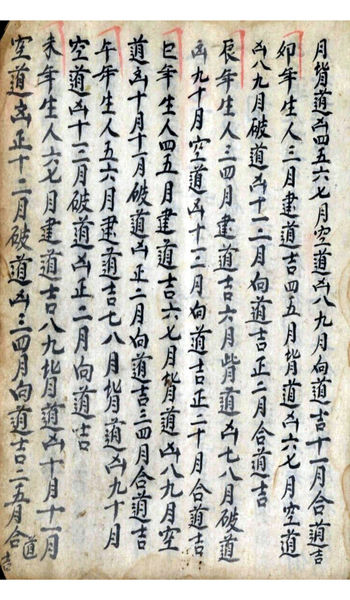 月背道凶四五六七月空道凶八九月向道吉十一月合道吉
卯年生人三月建道吉四五月背道凶六七月空道
凶八九月破道凶十一二月向道吉正二月合道吉
辰年生人三四月建道吉六月背道凶七八月破道
凶九十月空道凶十一二月向道吉正二十月合道吉
巳年生人四五月建道吉六七月背道凶八九月空
道凶十月十一月破道凶正二月向道吉三四月合道吉
午年生人五六月建道吉七八月背道凶九十月
空道凶十一二月破道凶正二月向道吉
未年生人六七月建道吉八九背月道凶十月十一月
空道凶正十二月破道凶三四月向道吉二五月合道吉